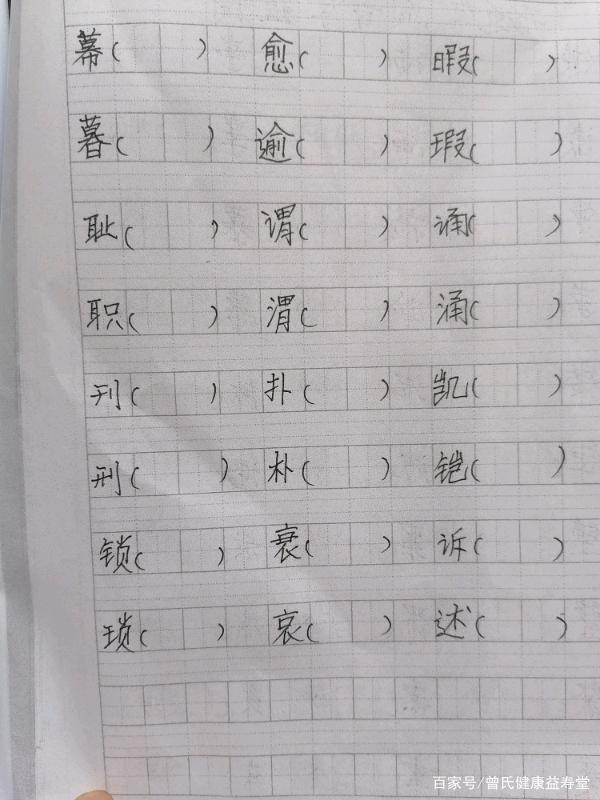 幕( ) 愈( ) 暇( )
暮( ) 逾( ) 瑕( )
耻( ) 谓( ) 诵( )
职( ) 渭( ) 涌( )
刊( ) 扑( ) 凯( )
刑( ) 朴( ) 铠( )
锁( ) 衰( ) 诉( )
琐( ) 哀( ) 述( )
百家号/曾氏健康益寿堂